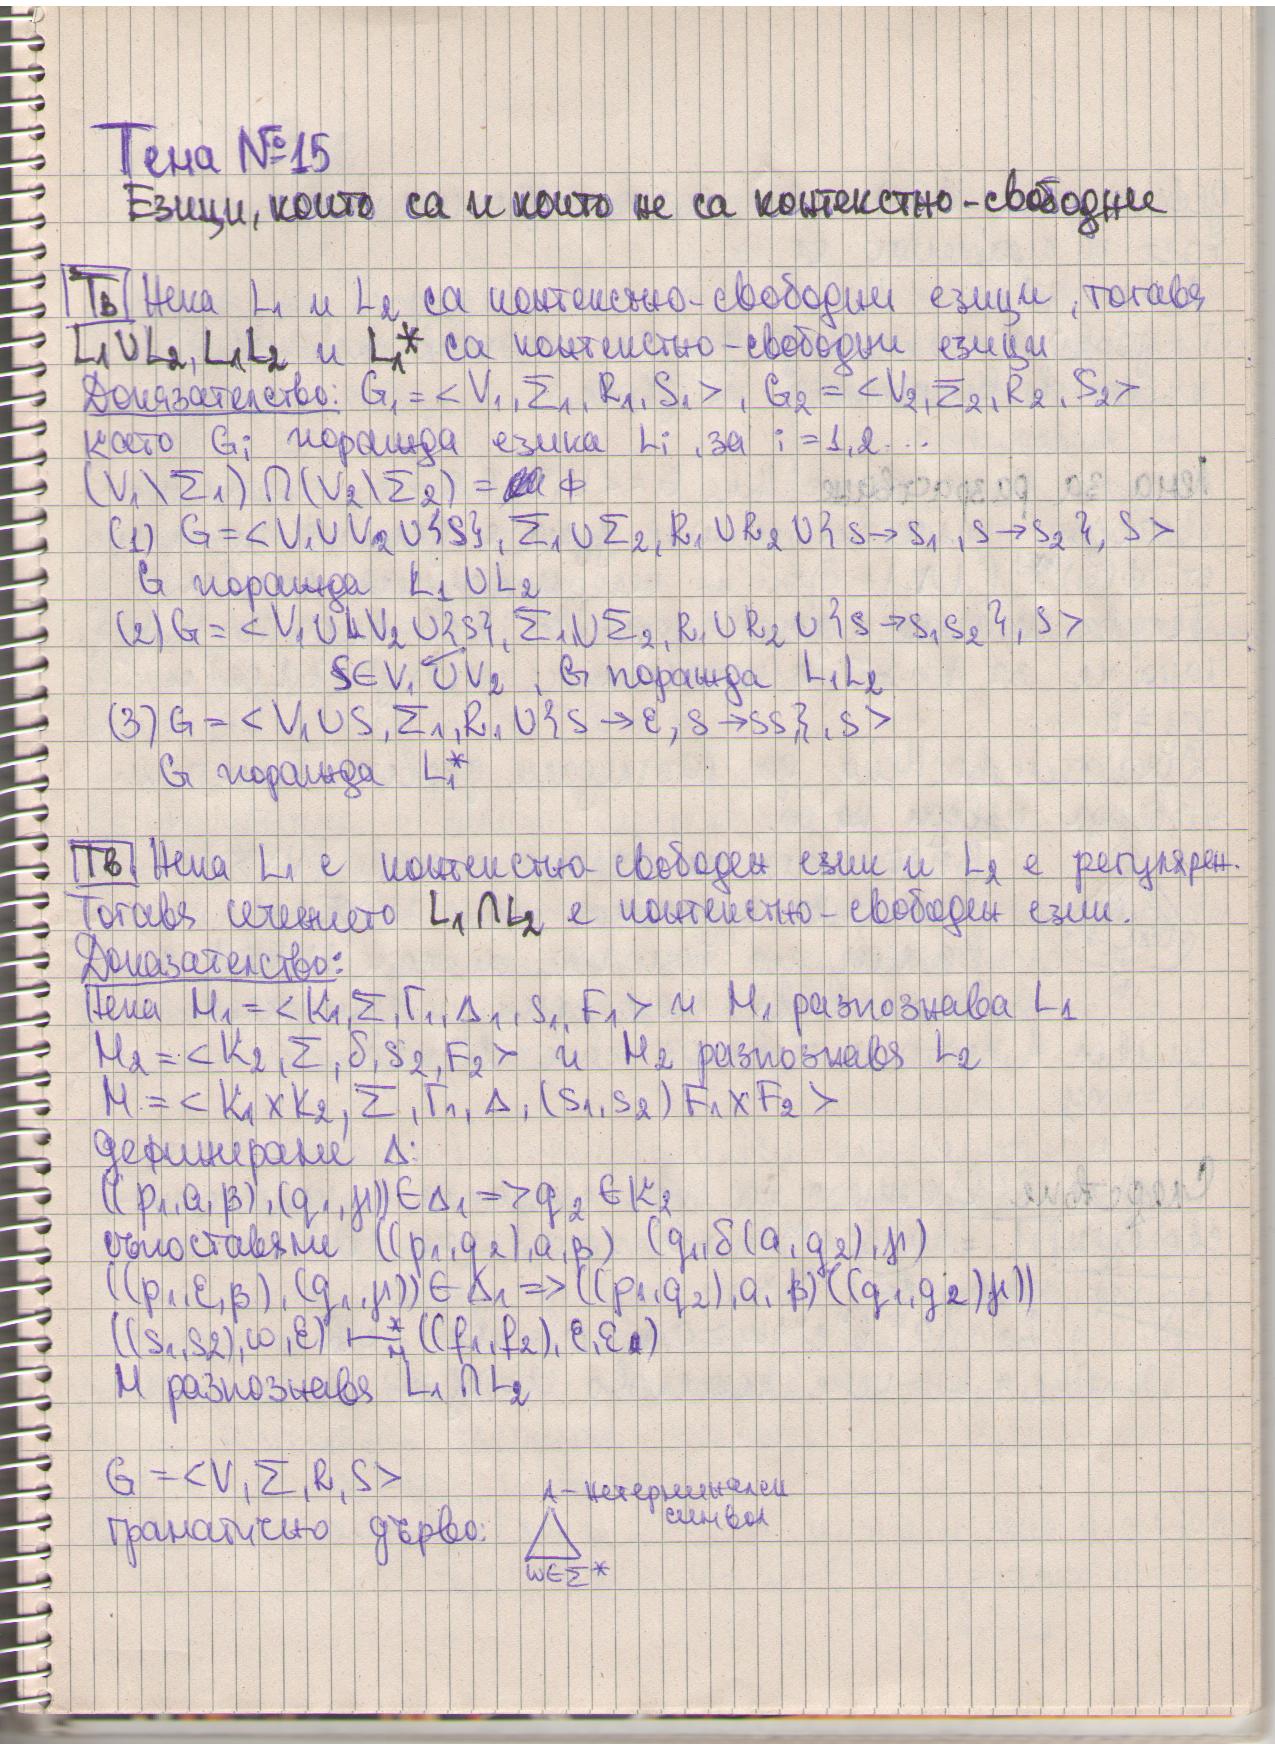 Тема №15
Езици, които са и които не са контекстно-свободни
Тв Нека L₁ и L₂ са контекстно-свободни езици, тогава
L₁∪L₂, L₁L₂ и L₁* са контекстно-свободни езици
Доказателство: G₁=<V₁,Σ₁,R₁,S₁>, G₂=<V₂,Σ₂,R₂,S₂>
като Gi поражда езика Li, за i=1,2...
(V₁\Σ₁)∩(V₂\Σ₂)= ϕ
(1) G=<V₁∪V₂∪{S},Σ₁∪Σ₂,R₁∪R₂∪{S→S₁,S→S₂},S>
G поражда L₁∪L₂
(2) G=<V₁∪V₂∪{S},Σ₁∪Σ₂,R₁∪R₂∪{S→S₁S₂},S>
S∈V₁∪V₂, G поражда L₁L₂
(3) G=<V₁∪S,Σ₁,R₁∪{S→ε,S→SS₁},S>
G поражда L₁*
Тв Нека L₁ е контекстно-свободен език и L₂ е регулярен.
Тогава сечението L₁∩L₂ е контекстно-свободен език.
Доказателство:
Нека M₁=<K₁,Σ,Γ₁,Δ₁,s₁,F₁> и M₁ разпознава L₁
M₂=<K₂,Σ,δ,s₂,F₂> и M₂ разпознава L₂
M=<K₁xK₂,Σ,Γ₁,Δ,(s₁,s₂)F₁xF₂>
дефинираме Δ:
((p₁,a,β),(q₁,μ))∈Δ₁=>q₂∈K₂
съпоставяме ((p₁,q₂),a,β) (q₁,δ(a,q₂),μ)
((p₁,ε,β),(q₁,μ))∈Δ₁=>((p₁,q₂),a,β)((q₁,q₂)μ))
((s₁,s₂),ω,ε) ⊢*M ((f₁,f₂),ε,ε)
M разпознава L₁∩L₂
G=<V,Σ,R,S>
A-нетерминален
символ
граматично дърво:
ω∈Σ*